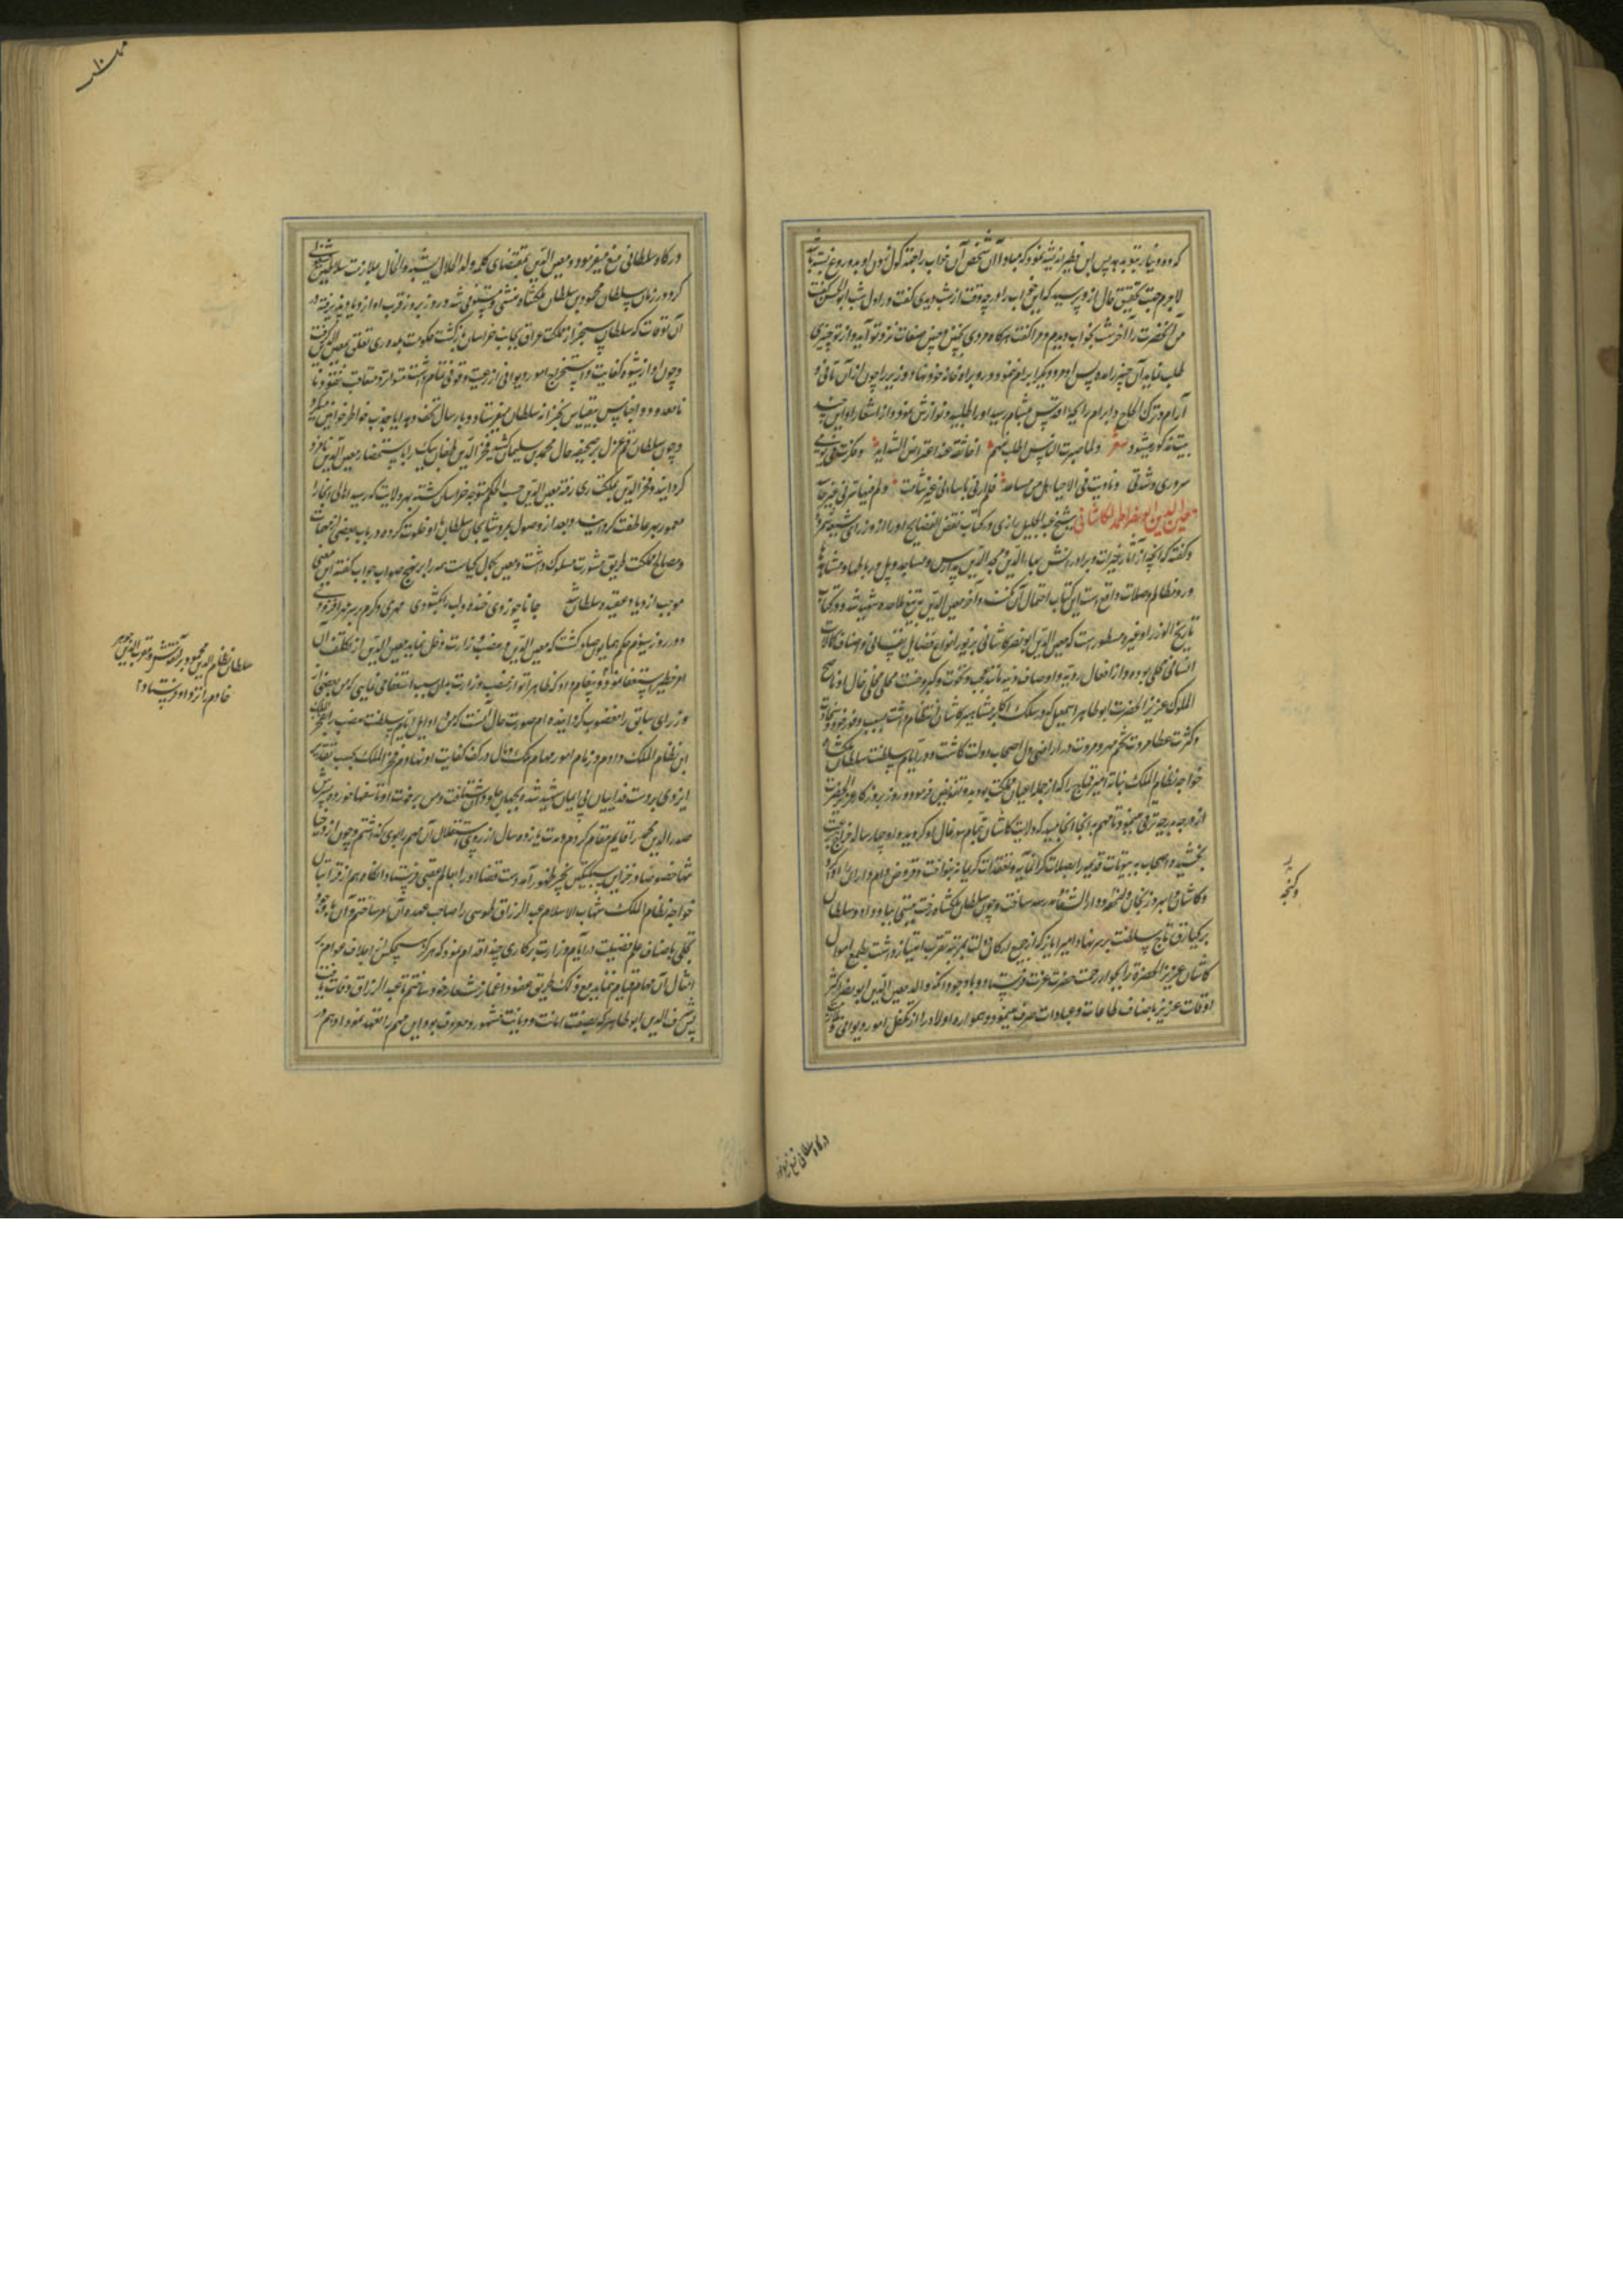 که ده دینار بتو بدهد پس ابن فطیر اندیشه نمود که مبادا آن شخص آن خواب را جهت کول زدن او بدروغ بسته باشد
لاجرم جهت تحقیق حال ازو پرسید که این خواب را در چه وقت از شب دیدی گفت در اول شب ابو الحسن گفت
من آنحضرت را آخر شب بخواب دیدم و مرا گفت هرگاه مردی بچنین و چنین صفات نزد تو آید و از تو چیزی
طلب نماید آن چیز را بده پس او مرد دیگر ابرام ننمود و رو براه خانه خود نهاد و وزیر را چون از آن تأنی و
آرام و ترک الحاح و ابرام رایحه اقدس بمشام رسید او را طلبید و نوازش نمود و از اشعار او این چند
بیت مذکور میشود شعر ولما صبرت الناس اطلب منهم اخا ثقة عند اعتراض الشداید و فکرت فی یومی
سروری و شدتی و نادیت فی الاحیا هل من مساعد فلم ار فی ما ساءنی غیر شامت ولم ار فیما سرنی غیر حاسد
معین الدین ابو نصر احمد الکاشانی شیخ عبد الجلیل رازی در کتاب نقض الفضایح او را از وزرای شیعه شمرده
و گفته که آنچه از آثار خیرات و برادرانش بهاء الدین و مجد الدین مدارس و مساجد و پل و رباطها و مشاهد
ورد مظالم و صلات واقع است این کتاب احتمال آن نکند و آخر معین الدین بتیغ ملاحده شهید شد و در کتاب
تاریخ الوزرا و غیره مسطور است که معین الدین ابو نصر کاشانی بزیور انواع فضایل نفسانی و اصناف کمالات
انسانی محلی بوده و از افعال ردیه و اوصاف دنیه مانند عجب و نخوت و کبر و خست مخلی خال او ناصح
الملوک عزیز الحضرت ابو طاهر اسمعیل که در سلک اکابر مشاهیر کاشان انتظام داشت بسبب وفور جود و سخاوت
و کثرت عطا و مروت تخم مهر و مروت در اراضی دل اصحاب دولت کاشت و در ایام سلطنت سلطان ملکشاه
خواجه نظام الملک نیابة امیر قماج را که از جمله اعیان مملکت بود بدو تفویض فرمود و روز بروز کار عزیز الحضرت
از درجه بدرجه ترقی مینمود تا مهم به آنجا انجامید که ولایت کاشان بتمام سیورغال او گردید و او چهار ساله خراج برعیت
بخشیده و اصحاب بیوتات قدیم را بصلات گرانمایه و تفقدات کریمانه بنواخت و قروض و ام داران ادا کرد
و کاشان و ابهر و زنجان و گنجه و دار الشفا و مدرسه ساخت و چون سلطان ملکشاه رخت هستی بباد داد و سلطان
برکیارق تاج سلطنت بر سر نهاد امیر ایاز که از جمیع ارکان دولت بمزید تقرب امتیاز داشت بطمع اموال
کاشان عزیز الحضرة را بجوار رحمت حضرت عزت فرستاد و با وجود آنکه والد معین الدین ابو نصر اکثر
اوقات عزیز باصناف طاعات و عبادات صرف مینمود و همواره اولاد را از تکفل امور دیوانی و ملازمت
و گنجه
درگاه سلطانی منع میفرمود
درگاه سلطانی منع میفرمود و معین الدین بمقتضای کلمه ولد الحلال یشبه والخال ملازمت سلاطین اختیار
کرد و در زمان سلطان محمود بن سلطان ملکشاه منشی و مستوفی شد و روز بروز قرب او ازدیاد پذیرفته در
آن اوقات که سلطان سنجر از مملکت عراق بجانب خراسان بازگشت حکومت بلده ری تعلق بمعین الدین گرفت
و چون او از شیوه کفایت و استخراج امور دیوانی از رعیت وقوفی تمام داشت متواتر و متعاقب نقود نا
نامعدود و اجناس بیقیاس بخزانه سلطان میفرستاد و بارسال تحف و هدایا جذب خاطر خواتین میکرد
و چون سلطان رقم عزل بر صحیفه حال محمد بن سلیمان کشید فخر الدین طغان بیک را باستحضار معین الدین نامزد
گردانید و فخر الدین بملکت ری رفته معین الدین حسب الحکم متوجه خراسان گشته بهر ولایت که رسید اهالی آنجا را
معمور بهر عاطفت گردانید و بعد از وصول بمرو شاهجان سلطان با او خلوت کرده در باب بعضی از مهمات
و مصالح مملکت طریق مشورت مسلوک داشت و معین بکمال کیاست همه را بر نهج صواب جواب گفته این معنی
موجب ازدیاد عقیده سلطان شد جانا چو زدی خنده و لب را بگشودی مهری دگرم بر سر مهر افزودی
و در روز سیوم حکم همایون صادر گشت که معین الدین در منصب وزارت دخل نماید معین الدین از تکلف آن
امر خطیر استعفا نمود و پیغام داد که ظاهرا نواز منصب وزارت بدان سبب استعفا می نمایی که من بعضی از
وزرای سابق را مغضوب گردانیده ام صورت حال آنست که من در اوایل ایام سلطنت منصب را بفخر الملک
ابن نظام الملک دادم و زمام امور مهام ملک و مال در کف کفایت او نهادم فخر الملک بحسب تقدیر
ایزدی بر دست فداییان بی ایمان شهید شد و بجهان جاودان شتافت و من بر فوت او تأسفها خورده پسرش
صدر الدین محمد را قایم مقام کردم و مدت یازده سال از روی استقلال آن مهم را بوی گذاشتم و چون ازو خیا
نتها خصوصا در خزاین سبکتگین بحیز ظهور آمد دست قضا او را بعالم عقبی فرستاد آنگاه هم از اقربای
خواجه نظام الملک شهاب الاسلام عبد الرزاق طوسی را صاحب عهده آن امر ساختم و آن با وجود
تحلی باصناف علم فضیلت در ایام وزارت بر کاری چند اقدام نمود که هرگز هیچکس از اجلاف عوام بر
امثال آن مهام قیام ننماید مع ذلک طریق عفو و اغماز شعار خود ساختم تا عبد الرزاق وفات یافت
پس شرف الدین ابو طاهر که بصفت امانت و دیانت مشهور و معروف بود این مهم را تعهد نمود و او هم در
سلطان نظام الدین محمود برآشفتش و مقرب الدین جوهر
خادم را نزد او فرستاد